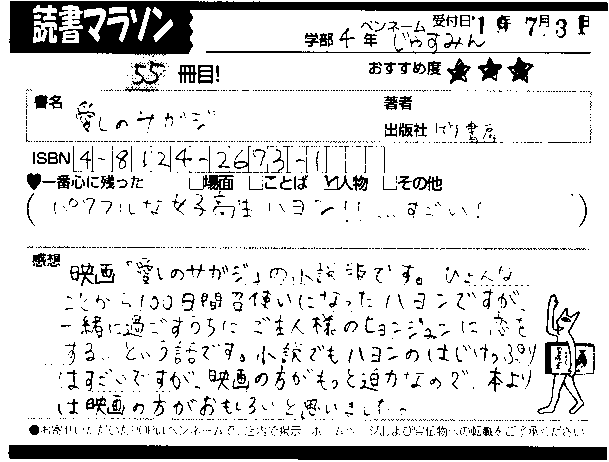 読書マラソン
学部 4年 ペンネーム じゃすみん 受付日 19年7月3日
55 冊目! おすすめ度 ★★★
書名 愛しのサガジ 著者
出版社 竹書房
ISBN 4-8124-2673-1
♥一番心に残った □場面 □ことば ☑人物 □その他
(パワフルな女子高生ハヨン!! …すごい!)
感想 映画「愛しのサガジ」の小説版です。ひょんな
ことから100日間召使いになったハヨンですが、
一緒に過ごすうちにご主人様のヒョンジュンに恋を
する、という話です。小説でもハヨンのはじけっぷり
はすごいですが、映画の方がもっと迫力なので、本より
は映画の方がおもしろいと思いました。
●お寄せいただいたPOPはペンネームで、店内で掲示、ホームページおよび宣伝物への転載をご了承ください